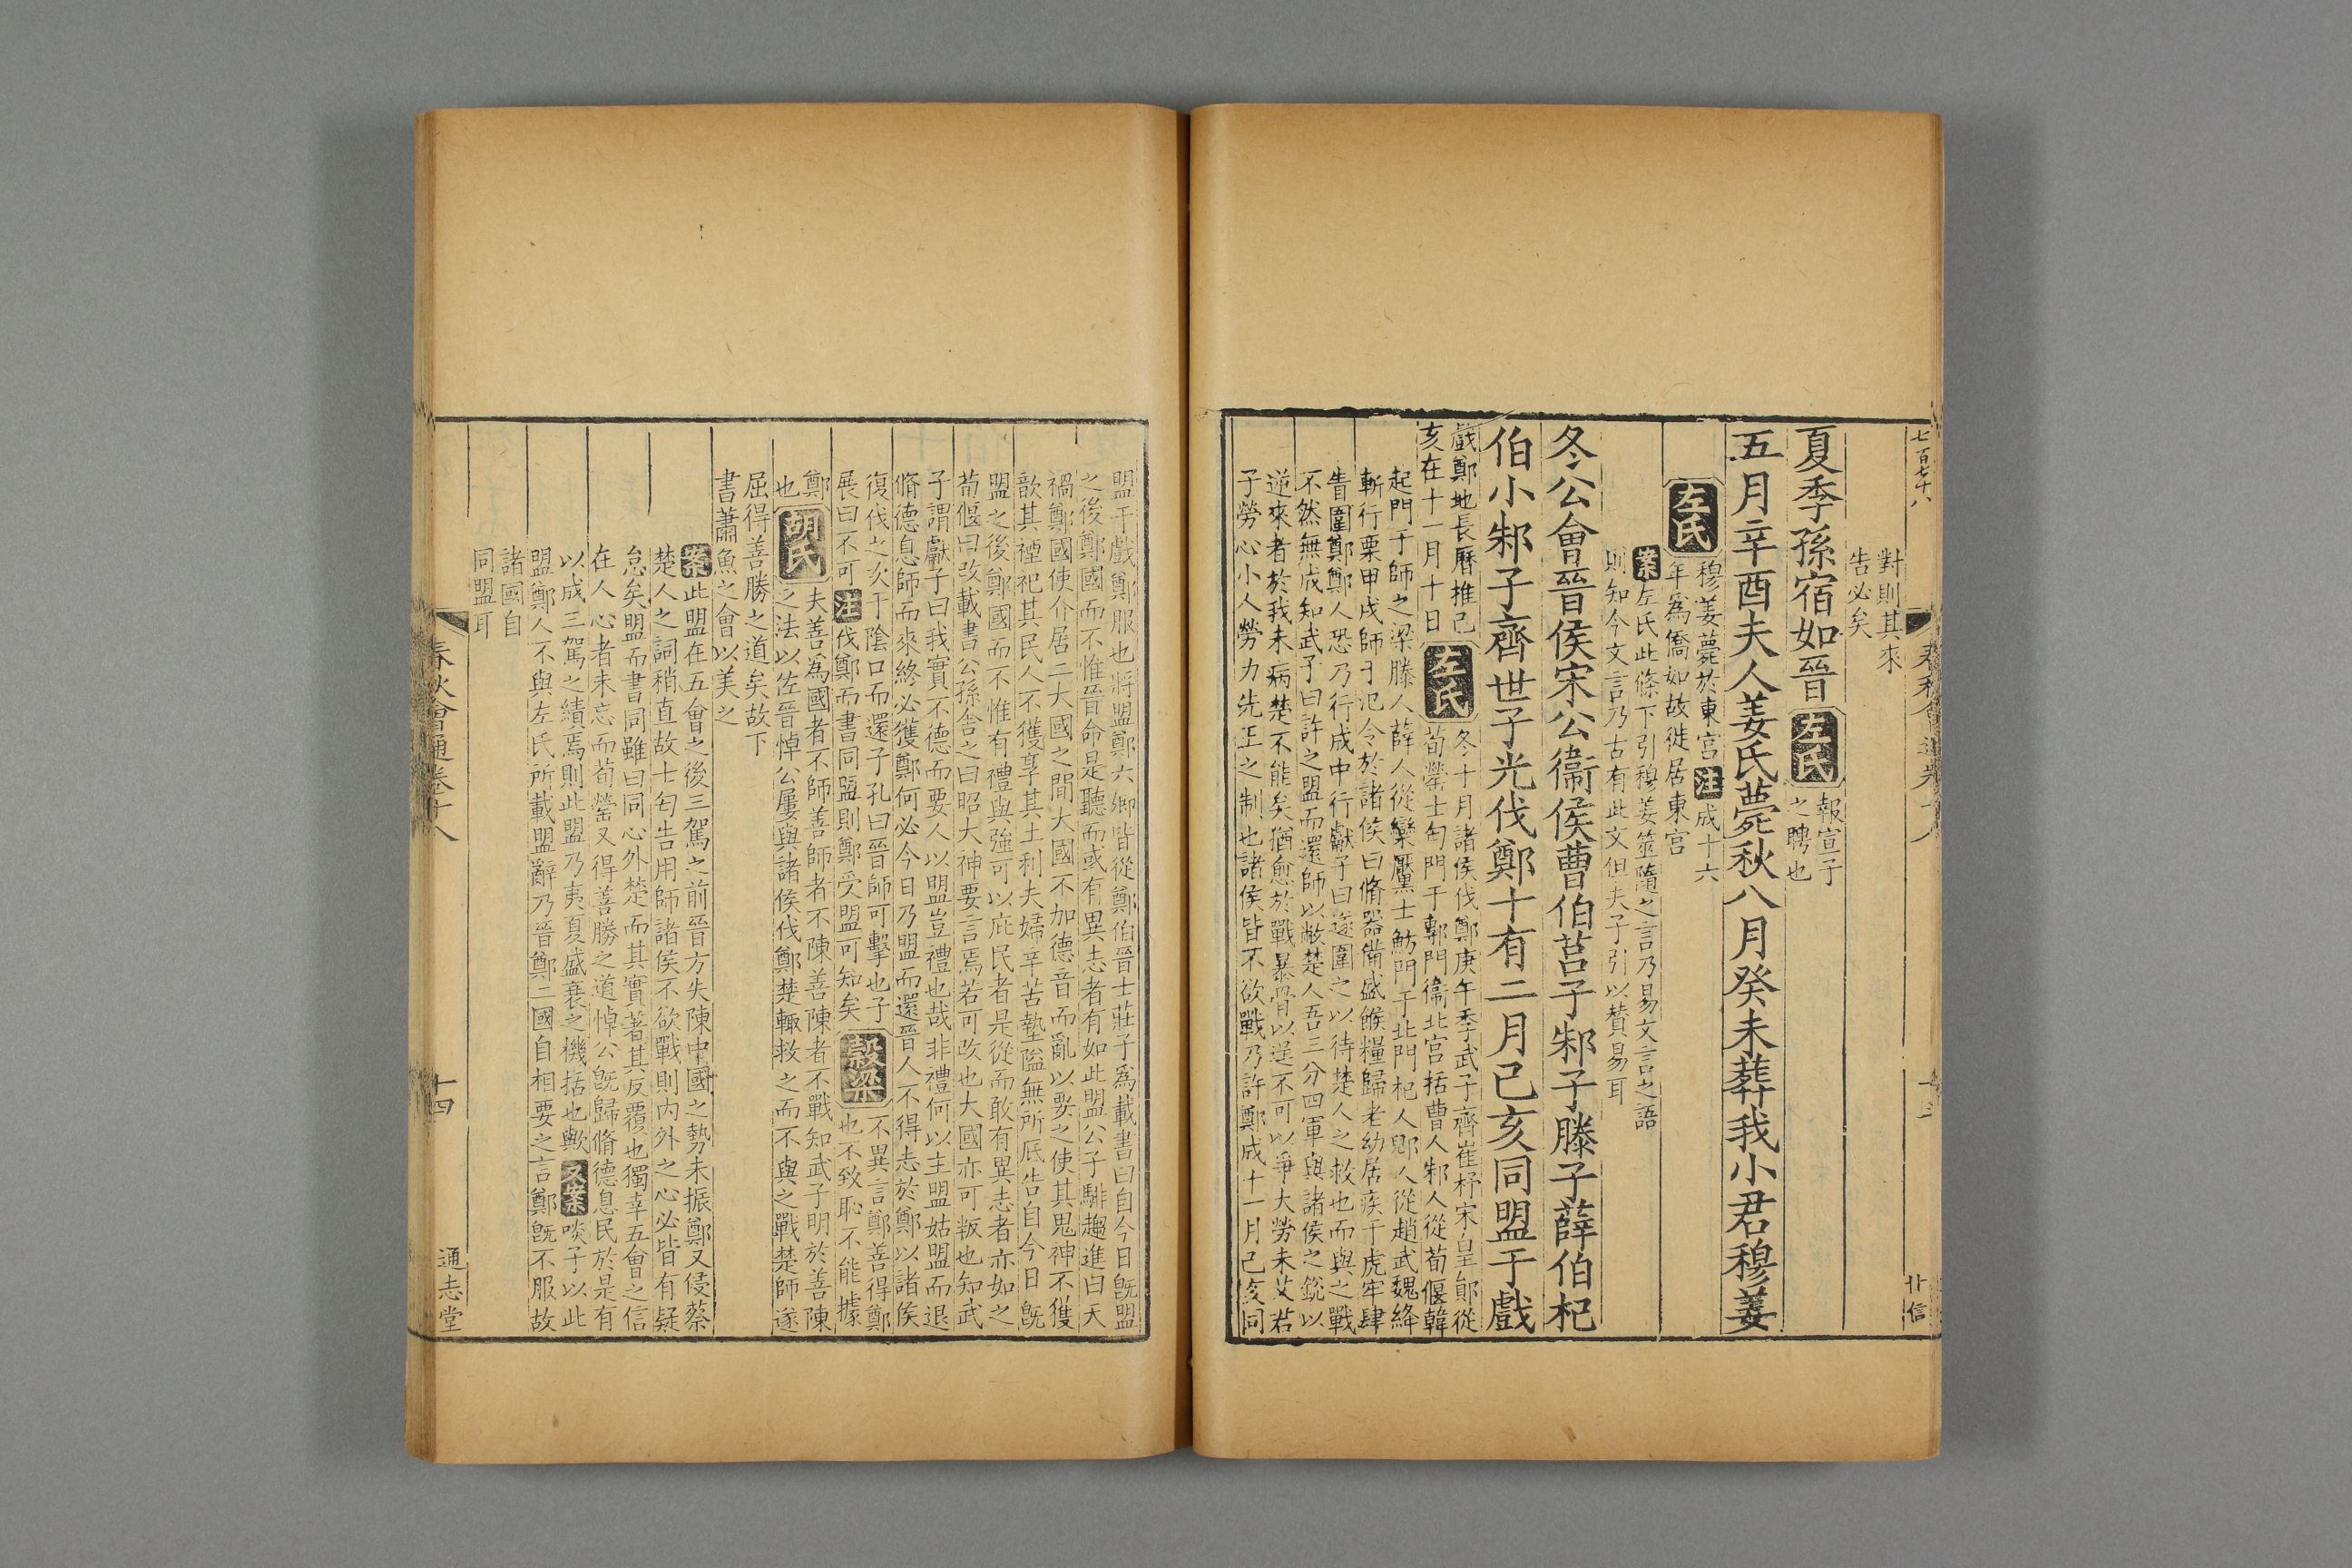 七百七十八
對則其來
告必矣
夏季孫宿如晉左氏報宣子
之聘也
五月辛酉夫人姜氏薨秋八月癸未葬我小君穆姜
左氏穆姜薨於東宮注成十六
年為僑如故徙居東宮
案左氏此條下引穆姜筮隨之言乃易文言之語
則知今文言乃古有此文但夫子引以贊易耳
冬公會晉侯宋公衞侯曹伯莒子邾子滕子薛伯杞
伯小邾子齊世子光伐鄭十有二月己亥同盟于戲
戲鄭地長曆推己
亥在十一月十日
左氏冬十月諸侯伐鄭庚午季武子齊崔杼宋皇鄖從
荀罃士匄門于鄟門衞北宮括曹人邾人從荀偃韓
起門于師之梁滕人薛人從欒黶士魴門于北門杞人郳人從趙武魏絳
斬行栗甲戌師于氾令於諸侯曰脩器備盛餱糧歸老幼居疾于虎牢肆
眚圍鄭鄭人恐乃行成中行獻子曰遂圍之以待楚人之救也而與之戰
不然無成知武子曰許之盟而還師以敝楚人吾三分四軍與諸侯之銳以
逆來者於我未病楚不能矣猶愈於戰暴骨以逞不可以爭大勞未艾君
子勞心小人勞力先王之制也諸侯皆不欲戰乃許鄭成十一月己亥同
盟于戲鄭服也將盟鄭六卿皆從鄭伯晉士莊子為載書曰自今日旣盟
之後鄭國而不惟晉命是聽而或有異志者有如此盟公子騑趨進曰天
禍鄭國使介居二大國之間大國不加德音而亂以要之使其鬼神不獲
歆其禋祀其民人不獲享其土利夫婦辛苦墊隘無所厎告自今日旣
盟之後鄭國而不惟有禮與強可以庇民者是從而敢有異志者亦如之
荀偃曰改載書公孫舍之曰昭大神要言焉若可改也大國亦可叛也知武
子謂獻子曰我實不德而要人以盟豈禮也哉非禮何以主盟姑盟而退
脩德息師而來終必獲鄭何必今日乃盟而還晉人不得志於鄭以諸侯
復伐之次于陰口而還子孔曰晉師可擊也子
展曰不可注伐鄭而書同盟則鄭受盟可知矣
穀梁不異言鄭善得鄭
也不致恥不能據
鄭
也
胡氏夫善為國者不師善師者不陳善陳者不戰知武子明於善陳
之法以佐晉悼公屢與諸侯伐鄭楚輒救之而不與之戰楚師遂
屈得善勝之道矣故下
書蕭魚之會以美之
案此盟在五會之後三駕之前晉方失陳中國之勢未振鄭又侵蔡
楚人之詞稍直故士匄告用師諸侯不欲戰則內外之心必皆有疑
怠矣盟而書同雖曰同心外楚而其實著其反覆也獨幸五會之信
在人心者未忘而荀罃又得善勝之道悼公旣歸脩德息民於是有
以成三駕之績焉則此盟乃夷夏盛衰之機括也歟又案啖子以此
盟鄭人不與左氏所載盟辭乃晉鄭二國自相要之言鄭旣不服故
諸國自
同盟耳
春秋會通卷十八
十四
通志堂